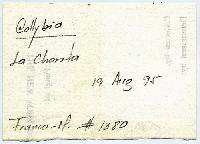 Collybia
La Chonta
19 Arg 95
Franco-M. # 1380